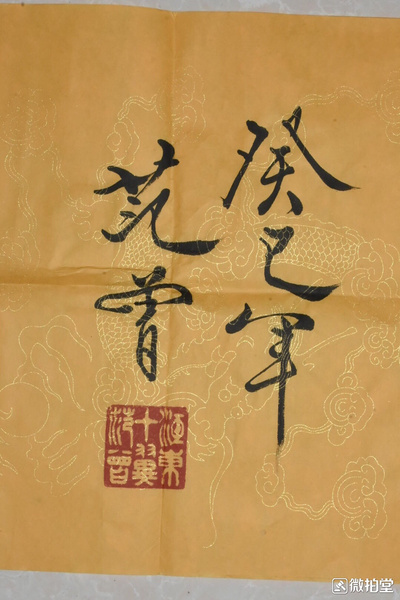 癸巳年
范曾
江東
十翼
范曾
微拍堂